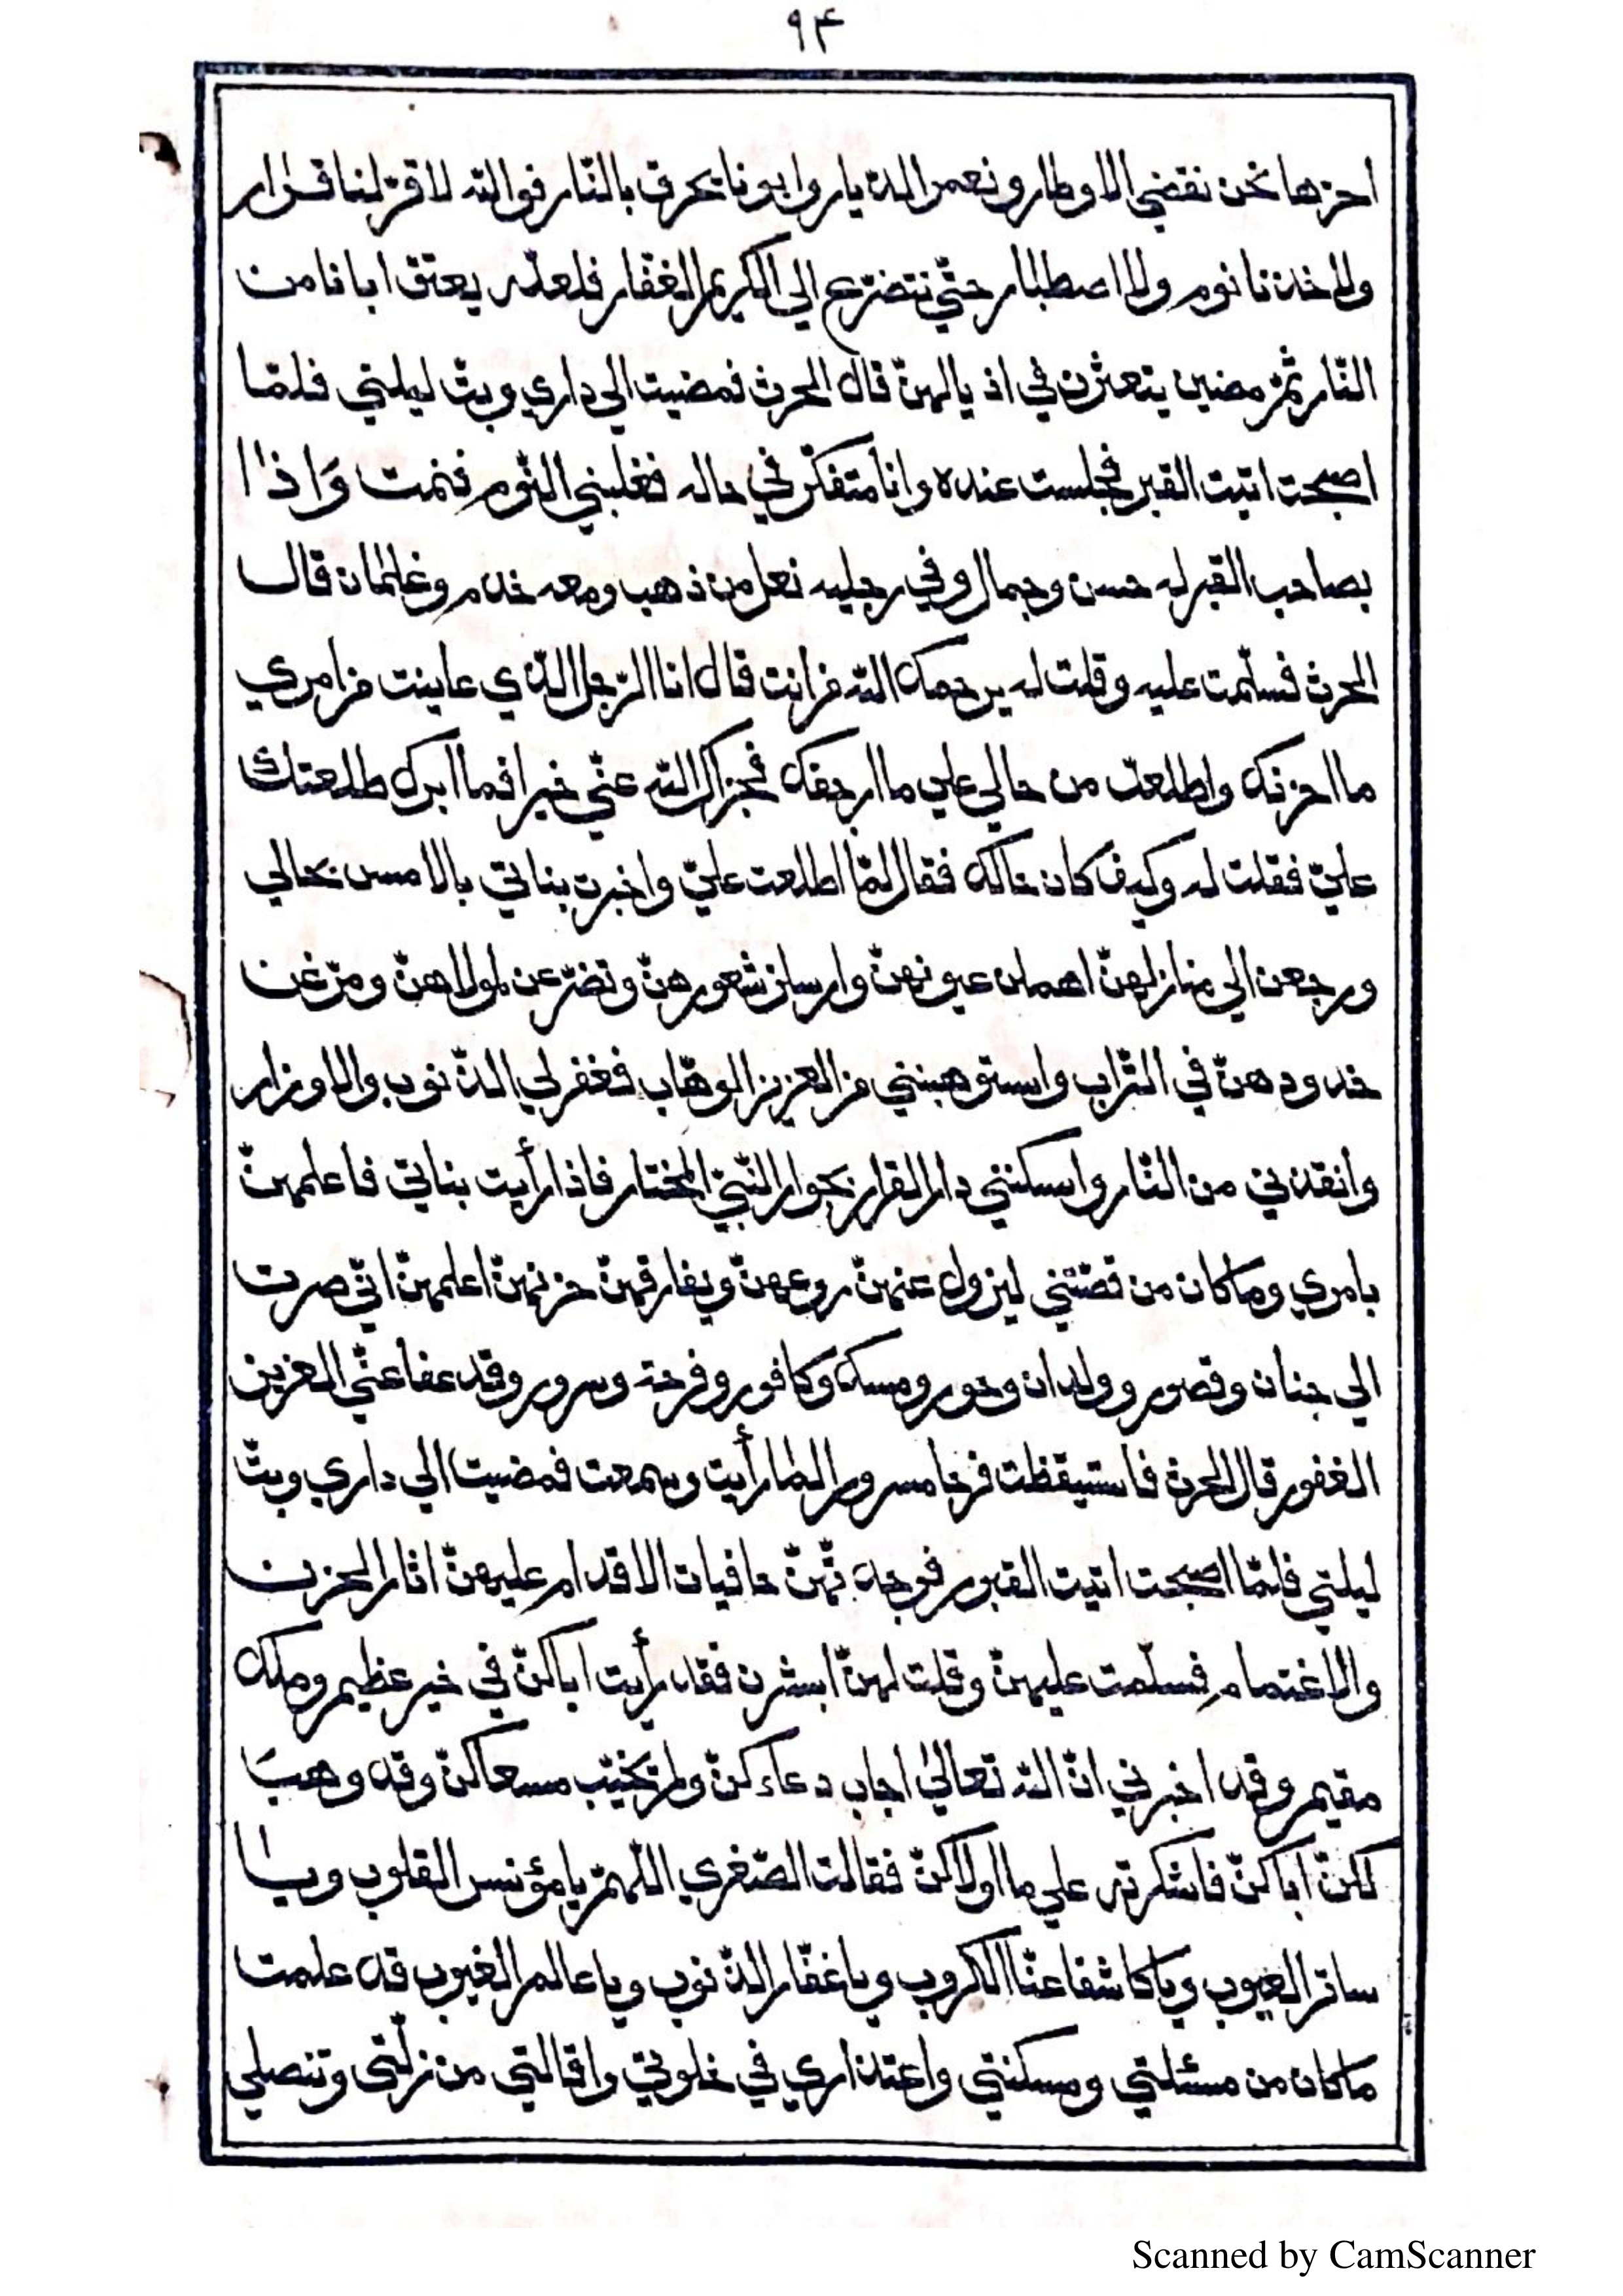 ٩٤
احزها نحن نقضي الاوطار ونعمر الديار وابونا يحرق بالنار فوالله لا قر لنا قرار
ولاخذنا نوم ولا اصطبار حتّي نتضرّع الي الكريم الغفّار فلعلّه يعتق ابانا من
النّار ثمّ مضين يتعثرن في اذيالهنّ قال الحرث فمضيت الي داري وبتّ ليلتي فلمّا
اصبحت اتيت القبر فجلست عنده وانا متفكّر في حاله فغلبني النّوم فنمت وَاذا
بصاحب القبر له حسن وجمال وفي رجليه نعل من ذهب ومعه خدم وغلمان قال
الحرث فسلّمت عليه وقلت له يرحمك الله من انت قال انا الرّجل الّذي عاينت من امري
ما احزنك واطلعت من حالي علي ما ارجفك فجزاك الله عنّي خيرا فما ابرك طلعتك
عليّ فقلت له وكيف كان حالك فقال لمّا اطلعت عليّ واخبرت بناتي بالامس بحالي
ورجعن الي منازلهنّ اهملن عيونهنّ وارسلن شعورهنّ وتضرّعن لمولاهنّ ومرّغن
خدودهنّ في التّراب واستوهبنني من العزيز الوهّاب فغفر لي الذّنوب والاوزار
وانقذني من النّار واسكنني دار القرار بجوار النّبيّ المختار فاذا رأيت بناتي فاعلمهنّ
بامري وما كان من قصّتي ليزول عنهنّ روعهنّ ويفارقهنّ حزنهنّ اعلمهنّ انّي صرت
الي جنان وقصور وولدان وحور ومسك وكافور وفرحة وسرور وقد عفا عنّي العزيز
الغفور قال الحرث فاستيقظت فرحا مسرورا لما رأيت وسمعت فمضيت الي داري وبتّ
ليلتي فلمّا اصبحت اتيت القبور فوجدتّهنّ حافيات الاقدام عليهنّ اثار الحزن
والاغتمام فسلّمت عليهنّ وقلت لهنّ ابشرن فقد رأيت اباكنّ في خير عظيم وملك
مقيم وقد اخبرني انّ الله تعالي اجاب دعاءكنّ ولم يخيّب مسعاكنّ وقد وهبَ
لكنّ اباكنّ فاشكرنه علي ما اولاكنّ فقالت الصّغري اللّهمّ يا مؤنس القلوب ويا
ساتر العيوب ويا كاشفا عنّا الكروب ويا غفّار الذّنوب ويا عالم الغيوب قد علمت
ما كان من مسئلتي ومسكنتي واعتذاري في خلوتي واقالتي من زلّتي وتنصلي
Scanned by CamScanner